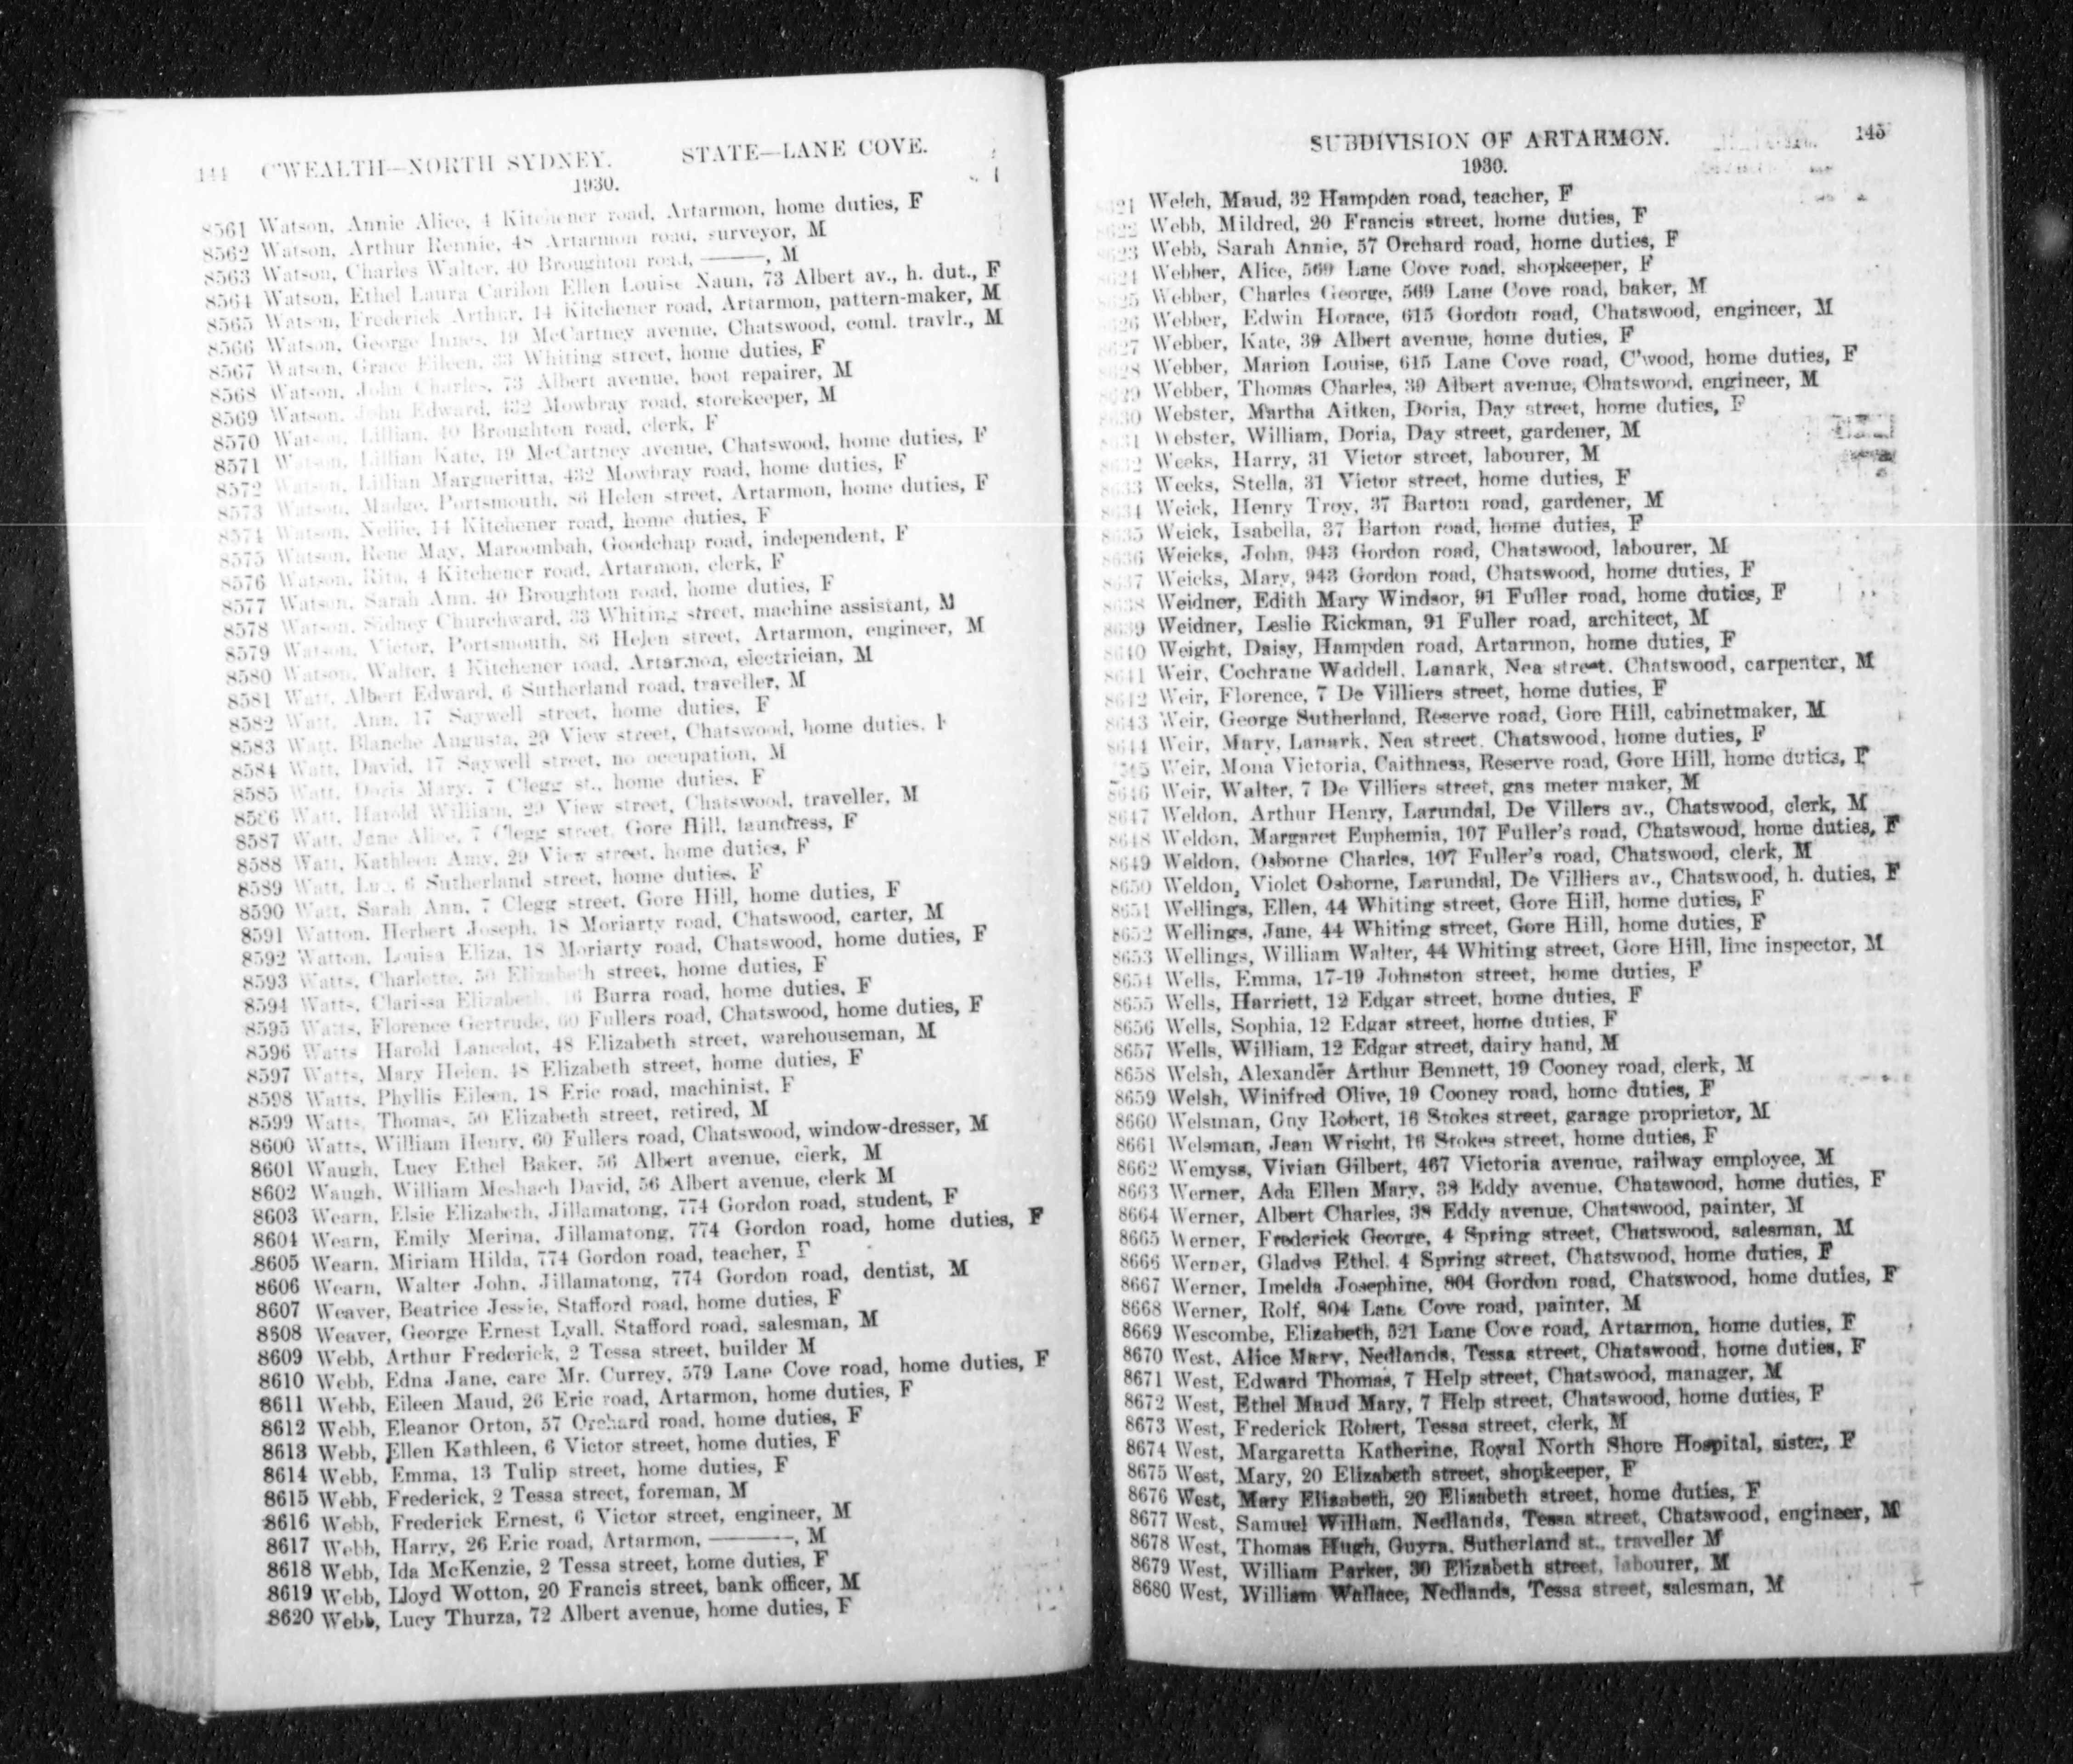 144 C'WEALTH—NORTH SYDNEY. STATE—LANE COVE.
1930.
8561 Watson, Annie Alice, 4 Kitchener road, Artarmon, home duties, F
8562 Watson, Arthur Rennie, 48 Artarmon road, surveyor, M
8563 Watson, Charles Walter, 40 Broughton road, ———, M
8564 Watson, Ethel Laura Carilon Ellen Louise Naun, 73 Albert av., h. dut., F
8565 Watson, Frederick Arthur, 14 Kitchener road, Artarmon, pattern-maker, M
8566 Watson, George Innes, 19 McCartney avenue, Chatswood, coml. travlr., M
8567 Watson, Grace Eileen, 33 Whiting street, home duties, F
8568 Watson, John Charles, 73 Albert avenue, boot repairer, M
8569 Watson, John Edward, 432 Mowbray road, storekeeper, M
8570 Watson, Lillian, 40 Broughton road, clerk, F
8571 Watson, Lillian Kate, 19 McCartney avenue, Chatswood, home duties, F
8572 Watson, Lillian Margueritta, 432 Mowbray road, home duties, F
8573 Watson, Madge, Portsmouth, 86 Helen street, Artarmon, home duties, F
8574 Watson, Nellie, 14 Kitchener road, home duties, F
8575 Watson, Rene May, Maroombah, Goodchap road, independent, F
8576 Watson, Rita, 4 Kitchener road, Artarmon, clerk, F
8577 Watson, Sarah Ann, 40 Broughton road, home duties, F
8578 Watson, Sidney Churchward, 33 Whiting street, machine assistant, M
8579 Watson, Victor, Portsmouth, 86 Helen street, Artarmon, engineer, M
8580 Watson, Walter, 4 Kitchener road, Artarmon, electrician, M
8581 Watt, Albert Edward, 6 Sutherland road, traveller, M
8582 Watt, Ann, 17 Saywell street, home duties, F
8583 Watt, Blanche Augusta, 29 View street, Chatswood, home duties, F
8584 Watt, David, 17 Saywell street, no occupation, M
8585 Watt, Doris Mary, 7 Clegg st., home duties, F
8586 Watt, Harold William, 29 View street, Chatswood, traveller, M
8587 Watt, Jane Alice, 7 Clegg street, Gore Hill, laundress, F
8588 Watt, Kathleen Amy, 29 View street, home duties, F
8589 Watt, 6 Sutherland street, home duties, F
8590 Watt, Sarah Ann, 7 Clegg street, Gore Hill, home duties, F
8591 Watton, Herbert Joseph, 18 Moriarty road, Chatswood, carter, M
8592 Watton, Louisa Eliza, 18 Moriarty road, Chatswood, home duties, F
8593 Watts, Charlotte, 50 Elizabeth street, home duties, F
8594 Watts, Clarissa Elizabeth, Burra road, home duties, F
8595 Watts, Florence Gertrude, 60 Fullers road, Chatswood, home duties, F
8596 Watts Harold Lancelot, 48 Elizabeth street, warehouseman, M
8597 Watts, Mary Helen, 48 Elizabeth street, home duties, F
8598 Watts, Phyllis Eileen, 18 Eric road, machinist, F
8599 Watts, Thomas, 50 Elizabeth street, retired, M
8600 Watts, William Henry, 60 Fullers road, Chatswood, window-dresser, M
8601 Waugh, Lucy Ethel Baker, 56 Albert avenue, clerk, M
8602 Waugh, William Meshach David, 56 Albert avenue, clerk M
8603 Wearn, Elsie Elizabeth, Jillamatong, 774 Gordon road, student, F
8604 Wearn, Emily Merina, Jillamatong, 774 Gordon road, home duties, F
8605 Wearn, Miriam Hilda, 774 Gordon road, teacher, F
8606 Wearn, Walter John, Jillamatong, 774 Gordon road, dentist, M
8607 Weaver, Beatrice Jessie, Stafford road, home duties, F
8608 Weaver, George Ernest Lyall, Stafford road, salesman, M
8609 Webb, Arthur Frederick, 2 Tessa street, builder M
8610 Webb, Edna Jane, care Mr. Currey, 579 Lane Cove road, home duties, F
8611 Webb, Eileen Maud, 26 Eric road, Artarmon, home duties, F
8612 Webb, Eleanor Orton, 57 Orchard road, home duties, F
8613 Webb, Ellen Kathleen, 6 Victor street, home duties, F
8614 Webb, Emma, 13 Tulip street, home duties, F
8615 Webb, Frederick, 2 Tessa street, foreman, M
8616 Webb, Frederick Ernest, 6 Victor street, engineer, M
8617 Webb, Harry, 26 Eric road, Artarmon, ————, M
8618 Webb, Ida McKenzie, 2 Tessa street, home duties, F
8619 Webb, Lloyd Wotton, 20 Francis street, bank officer, M
8620 Webb, Lucy Thurza, 72 Albert avenue, home duties, F
SUBDIVISION OF ARTARMON. 145
1930.
8621 Welch, Maud, 32 Hampden road, teacher, F
8622 Webb, Mildred, 20 Francis street, home duties, F
8623 Webb, Sarah Annie, 57 Orchard road, home duties, F
8624 Webber, Alice, 569 Lane Cove road, shopkeeper, F
8625 Webber, Charles George, 569 Lane Cove road, baker, M
8626 Webber, Edwin Horace, 615 Gordon road, Chatswood, engineer, M
8627 Webber, Kate, 39 Albert avenue, home duties, F
8628 Webber, Marion Louise, 615 Lane Cove road, C'wood, home duties, F
8629 Webber, Thomas Charles, 39 Albert avenue, Chatswood, engineer, M
8630 Webster, Martha Aitken, Doria, Day street, home duties, F
8631 Webster, William, Doria, Day street, gardener, M
8632 Weeks, Harry, 31 Victor street, labourer, M
8633 Weeks, Stella, 31 Victor street, home duties, F
8634 Weick, Henry Troy, 37 Barton road, gardener, M
8635 Weick, Isabella, 37 Barton road, home duties, F
8636 Weicks, John, 943 Gordon road, Chatswood, labourer, M
8637 Weicks, Mary, 943 Gordon road, Chatswood, home duties, F
8638 Weidner, Edith Mary Windsor, 91 Fuller road, home duties, F
8639 Weidner, Leslie Rickman, 91 Fuller road, architect, M
8640 Weight, Daisy, Hampden road, Artarmon, home duties, F
8641 Weir, Cochrane Waddell, Lanark, Nea street, Chatswood, carpenter, M
8642 Weir, Florence, 7 De Villiers street, home duties, F
8643 Weir, George Sutherland, Reserve road, Gore Hill, cabinetmaker, M
8644 Weir, Mary, Lanark, Nea street, Chatswood, home duties, F
8645 Weir, Mona Victoria, Caithness, Reserve road, Gore Hill, home duties, F
8646 Weir, Walter, 7 De Villiers street, gas meter maker, M
8647 Weldon, Arthur Henry, Larundal, De Villers av., Chatswood, clerk, M
8648 Weldon, Margaret Euphemia, 107 Fuller's road, Chatswood, home duties, F
8649 Weldon, Osborne Charles, 107 Fuller's road, Chatswood, clerk, M
8650 Weldon, Violet Osborne, Larundal, De Villiers av., Chatswood, h. duties, F
8651 Wellings, Ellen, 44 Whiting street, Gore Hill, home duties, F
8652 Wellings, Jane, 44 Whiting street, Gore Hill, home duties, F
8653 Wellings, William Walter, 44 Whiting street, Gore Hill, line inspector, M
8654 Wells, Emma, 17-19 Johnston street, home duties, F
8655 Wells, Harriett, 12 Edgar street, home duties, F
8656 Wells, Sophia, 12 Edgar street, home duties, F
8657 Wells, William, 12 Edgar street, dairy hand, M
8658 Welsh, Alexander Arthur Bennett, 19 Cooney road, clerk, M
8659 Welsh, Winifred Olive, 19 Cooney road, home duties, F
8660 Welsman, Guy Robert, 16 Stokes street, garage proprietor, M
8661 Welsman, Jean Wright, 16 Stokes street, home duties, F
8662 Wemyss, Vivian Gilbert, 467 Victoria avenue, railway employee, M
8663 Werner, Ada Ellen Mary, 38 Eddy avenue, Chatswood, home duties, F
8664 Werner, Albert Charles, 38 Eddy avenue, Chatswood, painter, M
8665 Werner, Frederick George, 4 Spring street, Chatswood, salesman, M
8666 Werner, Gladys Ethel, 4 Spring street, Chatswood, home duties, F
8667 Werner, Imelda Josephine, 804 Gordon road, Chatswood, home duties, F
8668 Werner, Rolf, 804 Lane Cove road, painter, M
8669 Wescombe, Elizabeth, 521 Lane Cove road, Artarmon, home duties, F
8670 West, Alice Mary, Nedlands, Tessa street, Chatswood, home duties, F
8671 West, Edward Thomas, 7 Help street, Chatswood, manager, M
8672 West, Ethel Maud Mary, 7 Help street, Chatswood, home duties, F
8673 West, Frederick Robert, Tessa street, clerk, M
8674 West, Margaretta Katherine, Royal North Shore Hospital, sister, F
8675 West, Mary, 20 Elizabeth street, shopkeeper, F
8676 West, Mary Elizabeth, 20 Elizabeth street, home duties, F
8677 West, Samuel William, Nedlands, Tessa street, Chatswood, engineer, M
8678 West, Thomas Hugh, Guyra, Sutherland st., traveller M
8679 West, William Parker, 30 Elizabeth street, labourer, M
8680 West, William Wallace, Nedlands, Tessa street, salesman, M